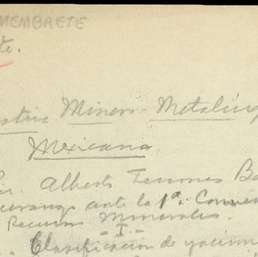 MEMBRETE
te.
Minero-Metalúrg
Mexicana
Sr. Alberto Terrones Be
Durango ante la 1ª. Conven
Recursos Minerales.
- I -
Clasificación de yacim